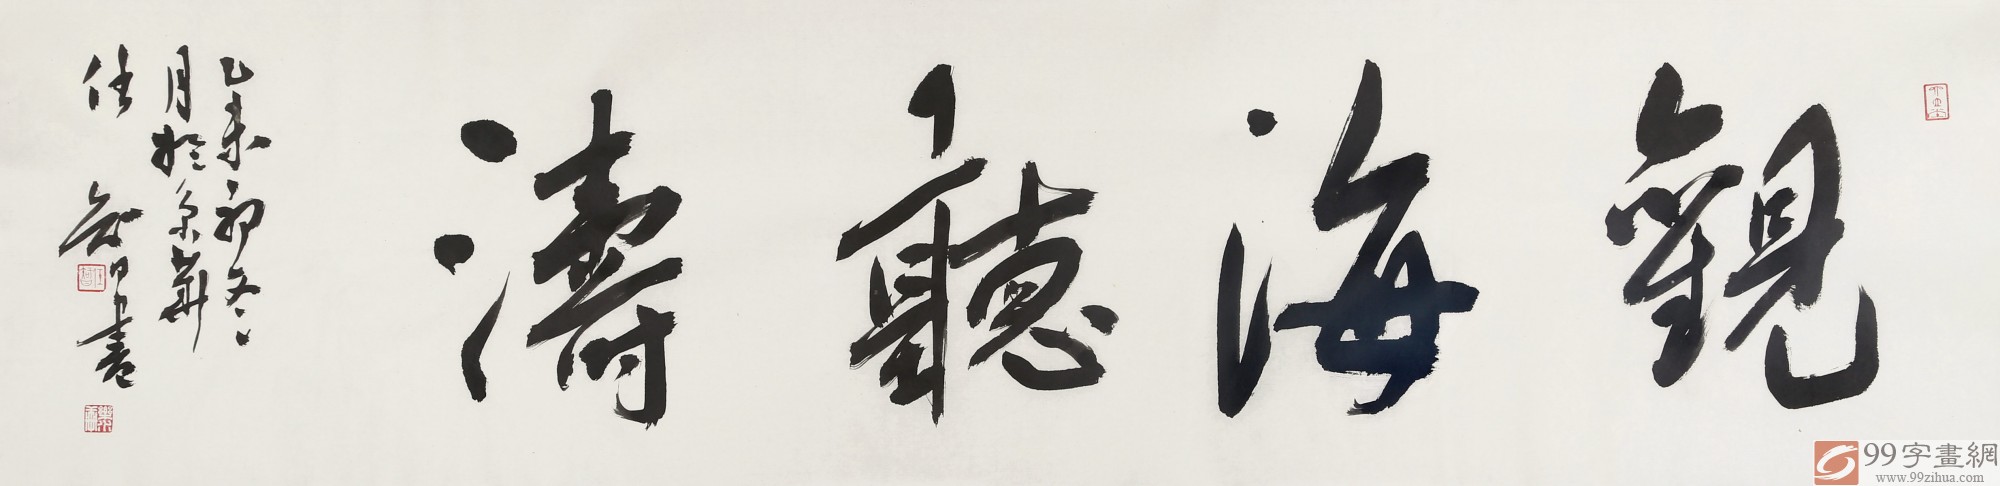 觀海聽濤
乙未初冬
月於京華
任智書
99字畫網
www.99zihua.com